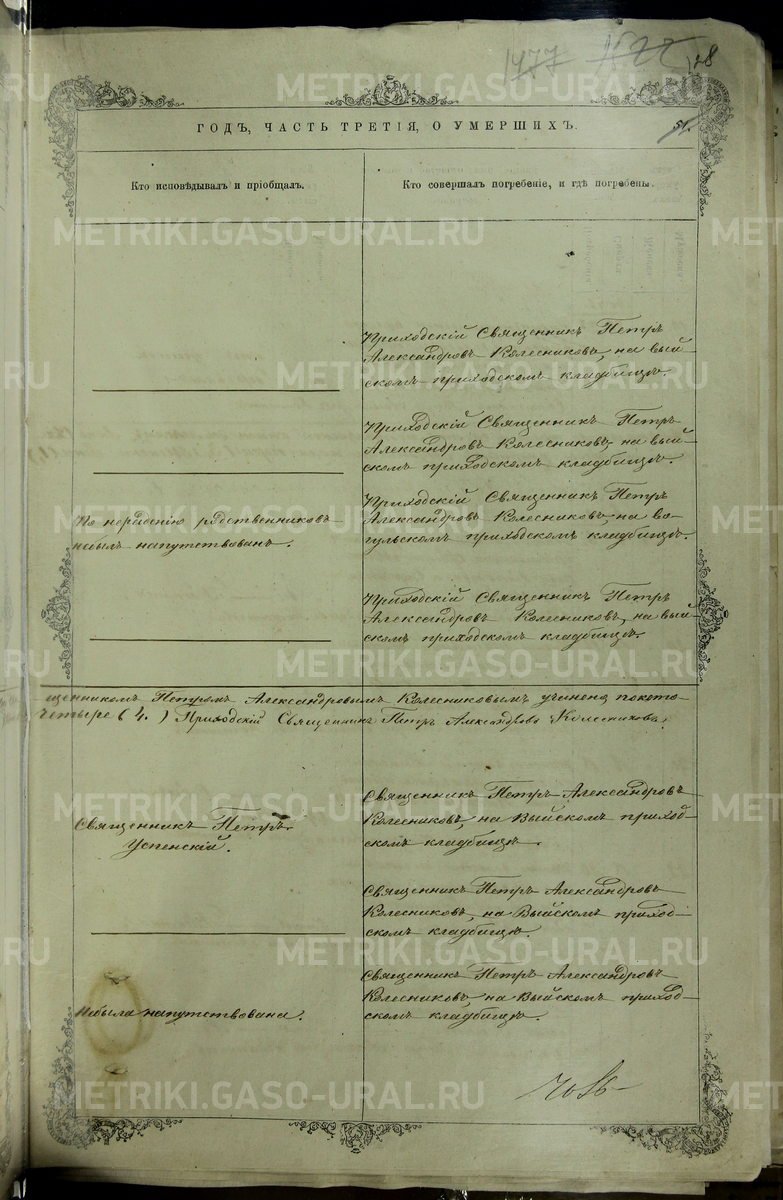 1477 1522 128
ГОДЪ, ЧАСТЬ ТРЕТІЯ, О УМЕРШИХЪ.
51.
Кто исповѣдывалъ и пріобщалъ.
Кто совершалъ погребеніе, и гдѣ погребены.
Приходскій Священникъ Петръ
Александровъ Колесниковъ, на вый-
скомъ приходскомъ кладбищѣ.
Приходскій Священникъ Петръ
Александровъ Колесниковъ, на вый-
скомъ приходскомъ кладбищѣ.
По нерадѣнію родственниковъ
небылъ напутствованъ.
Приходскій Священникъ Петръ
Александровъ Колесниковъ, на во-
гульскомъ приходскомъ кладбищѣ.
Приходскій Священникъ Петръ
Александровъ Колесниковъ, на вый-
скомъ приходскомъ кладбищѣ.
щенникомъ Петромъ Александровымъ Колесниковымъ учинена, по кото-
четыре (4.) Приходскій Священникъ Петръ Александровъ Колесниковъ.
Священникъ Петръ
Успенскій.
Священникъ Петръ Александровъ
Колесниковъ, на Выйскомъ приход-
скомъ кладбищѣ.
Священникъ Петръ Александровъ
Колесниковъ, на Выйскомъ приход-
скомъ кладбищѣ.
Небыла напутствована.
Священникъ Петръ Александровъ
Колесниковъ, на Выйскомъ приход-
скомъ кладбищѣ.
METRIKI.GASO-URAL.RU